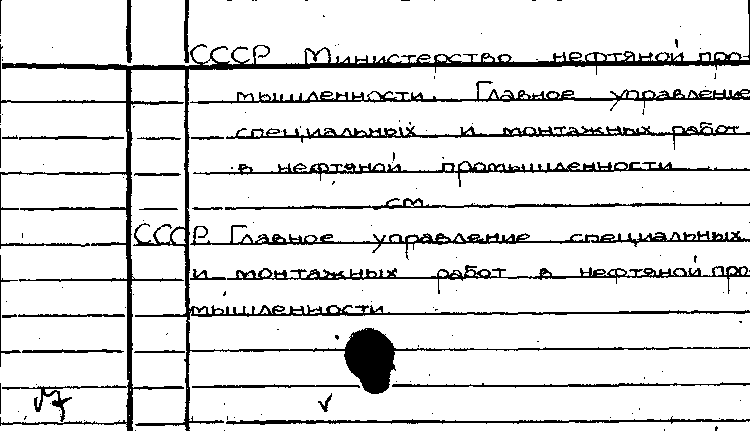 СССР Министерство нефтяной про-
мышленности. Главное управление
специальных и монтажных работ
в нефтяной промышленности
см
СССР. Главное управление специальных
и монтажных работ в нефтяной про-
мышленности